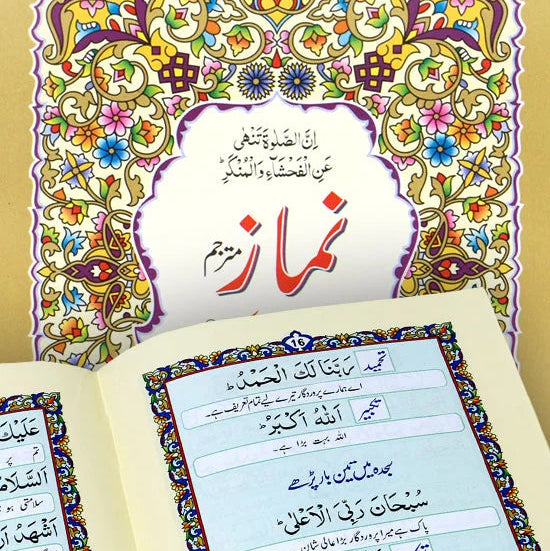 اِنَّ الصَّلٰوةَ تَنْهٰى
عَنِ الْفَحْشَآءِ وَالْمُنْكَرِؕ
نماز
مترجم
16
تحمید رَبَّنَا لَكَ الْحَمْدُؕ
اے ہمارے پروردگار تیرے لیے تمام تعریف ہے۔
تکبیر اَللّٰهُ اَكْبَرُؕ
اللہ بہت بڑا ہے۔
سجدہ میں تین بار پڑھے
سُبْحَانَ رَبِّیَ الْاَعْلٰىؕ
پاک ہے میرا پروردگار بڑا عالی شان
عَلَيْكَ
تم پر
اَلسَّلَا
سلامتی ہو
اَشْهَدُ اَنْ